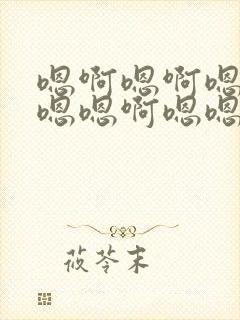 嗯啊嗯啊嗯
嗯嗯啊嗯嗯
莜芩末